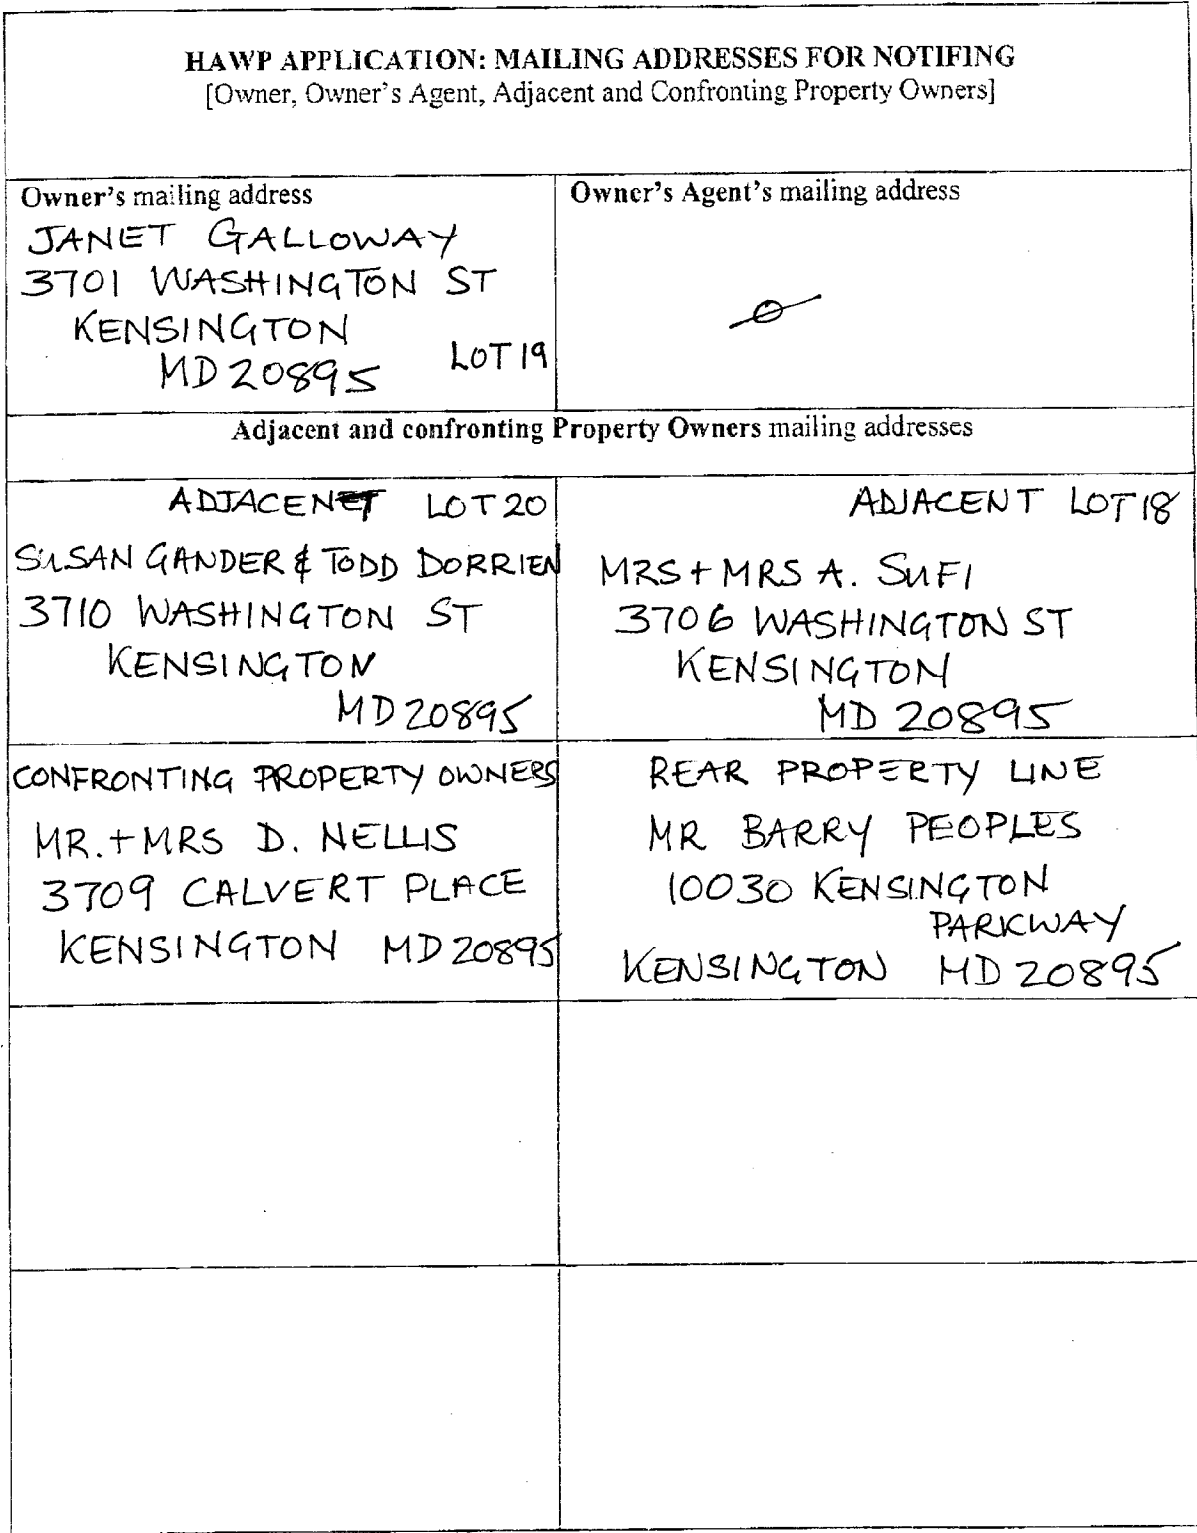 HAWP APPLICATION: MAILING ADDRESSES FOR NOTIFING
[Owner, Owner's Agent, Adjacent and Confronting Property Owners]
Owner's mailing address
JANET GALLOWAY
3701 WASHINGTON ST
KENSINGTON
LOT 19
MD 20895
Owner's Agent's mailing address
Adjacent and confronting Property Owners mailing addresses
ADJACENT LOT 20
SUSAN GANDER & TODD DORRIEN
3710 WASHINGTON ST
KENSINGTON
MD 20895
ADJACENT LOT 18
MRS + MRS A. SUFI
3706 WASHINGTON ST
KENSINGTON
MD 20895
CONFRONTING PROPERTY OWNERS
MR. + MRS D. NELLIS
3709 CALVERT PLACE
KENSINGTON MD 20895
REAR PROPERTY LINE
MR BARRY PEOPLES
10030 KENSINGTON
PARKWAY
KENSINGTON MD 20895